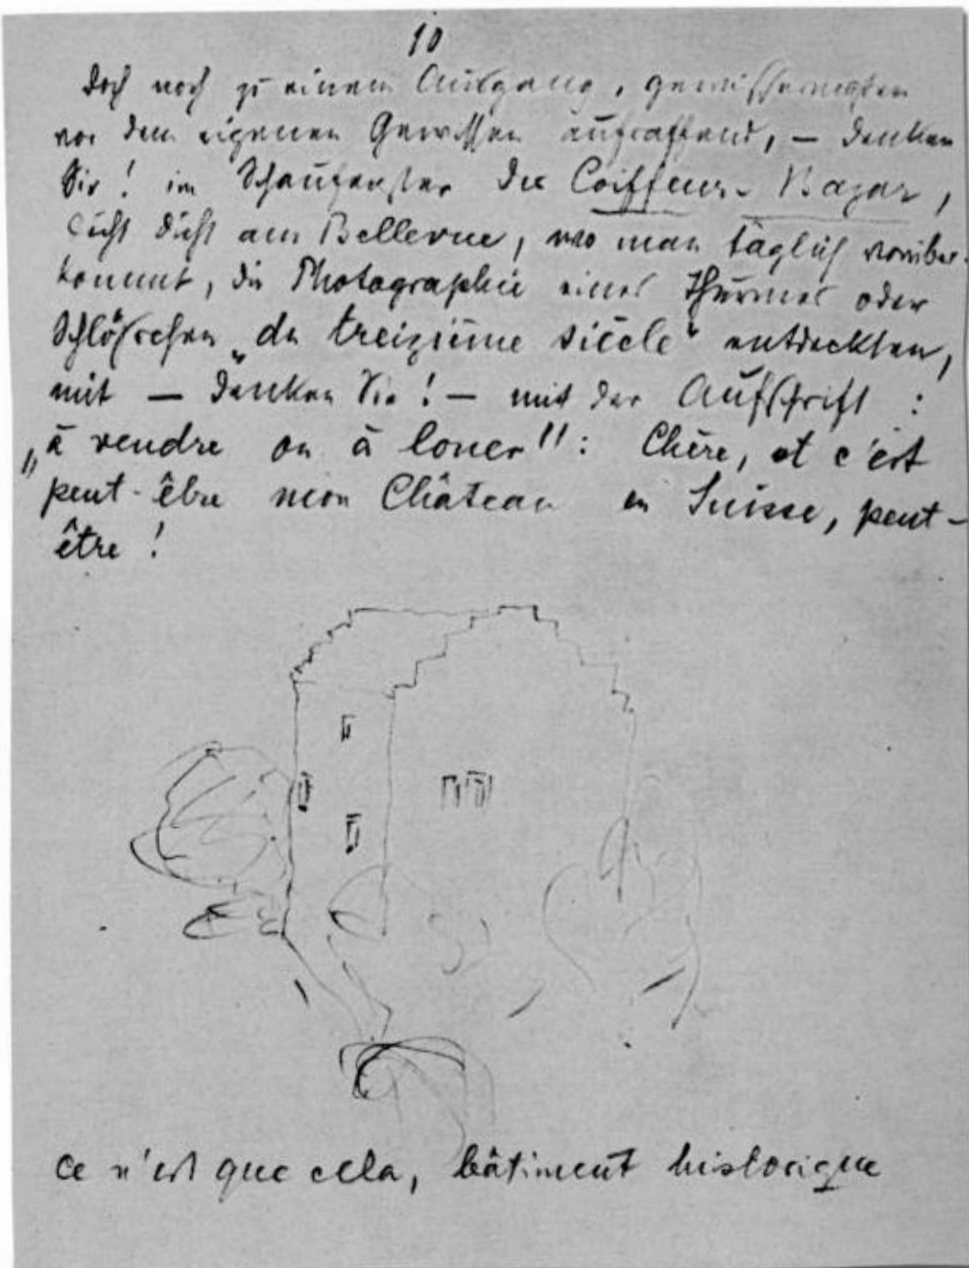 10
doch noch zu einem Ausgang, gewissermaßen
vor dem eigenen Gewissen aufraffend, – denken
Sie! im Schaufenster des Coiffeur-Bazar,
dicht am Bellevue, wo man täglich vorüber-
kommt, die Photographie eines Thurmes oder
Schlößchen „du treizième siècle“ entdeckten,
mit – denken Sie! – mit der Aufschrift :
„à vendre ou à louer“: Chère, et c'est
peut-être mon Château en Suisse, peut-
être !
ce n'est que cela, bâtiment historique